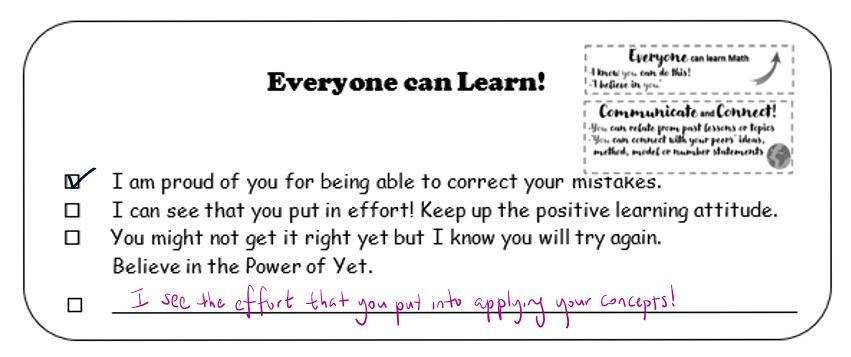 Everyone can Learn!
Everyone can learn Math
-I know you can do this!
-"I believe in you"
Communicate and Connect!
-You can relate from past lessons or topics
-You can connect with your peers' ideas,
method, model or number statements
I am proud of you for being able to correct your mistakes.
I can see that you put in effort! Keep up the positive learning attitude.
You might not get it right yet but I know you will try again.
Believe in the Power of Yet.
I see the effort that you put into applying your concepts!